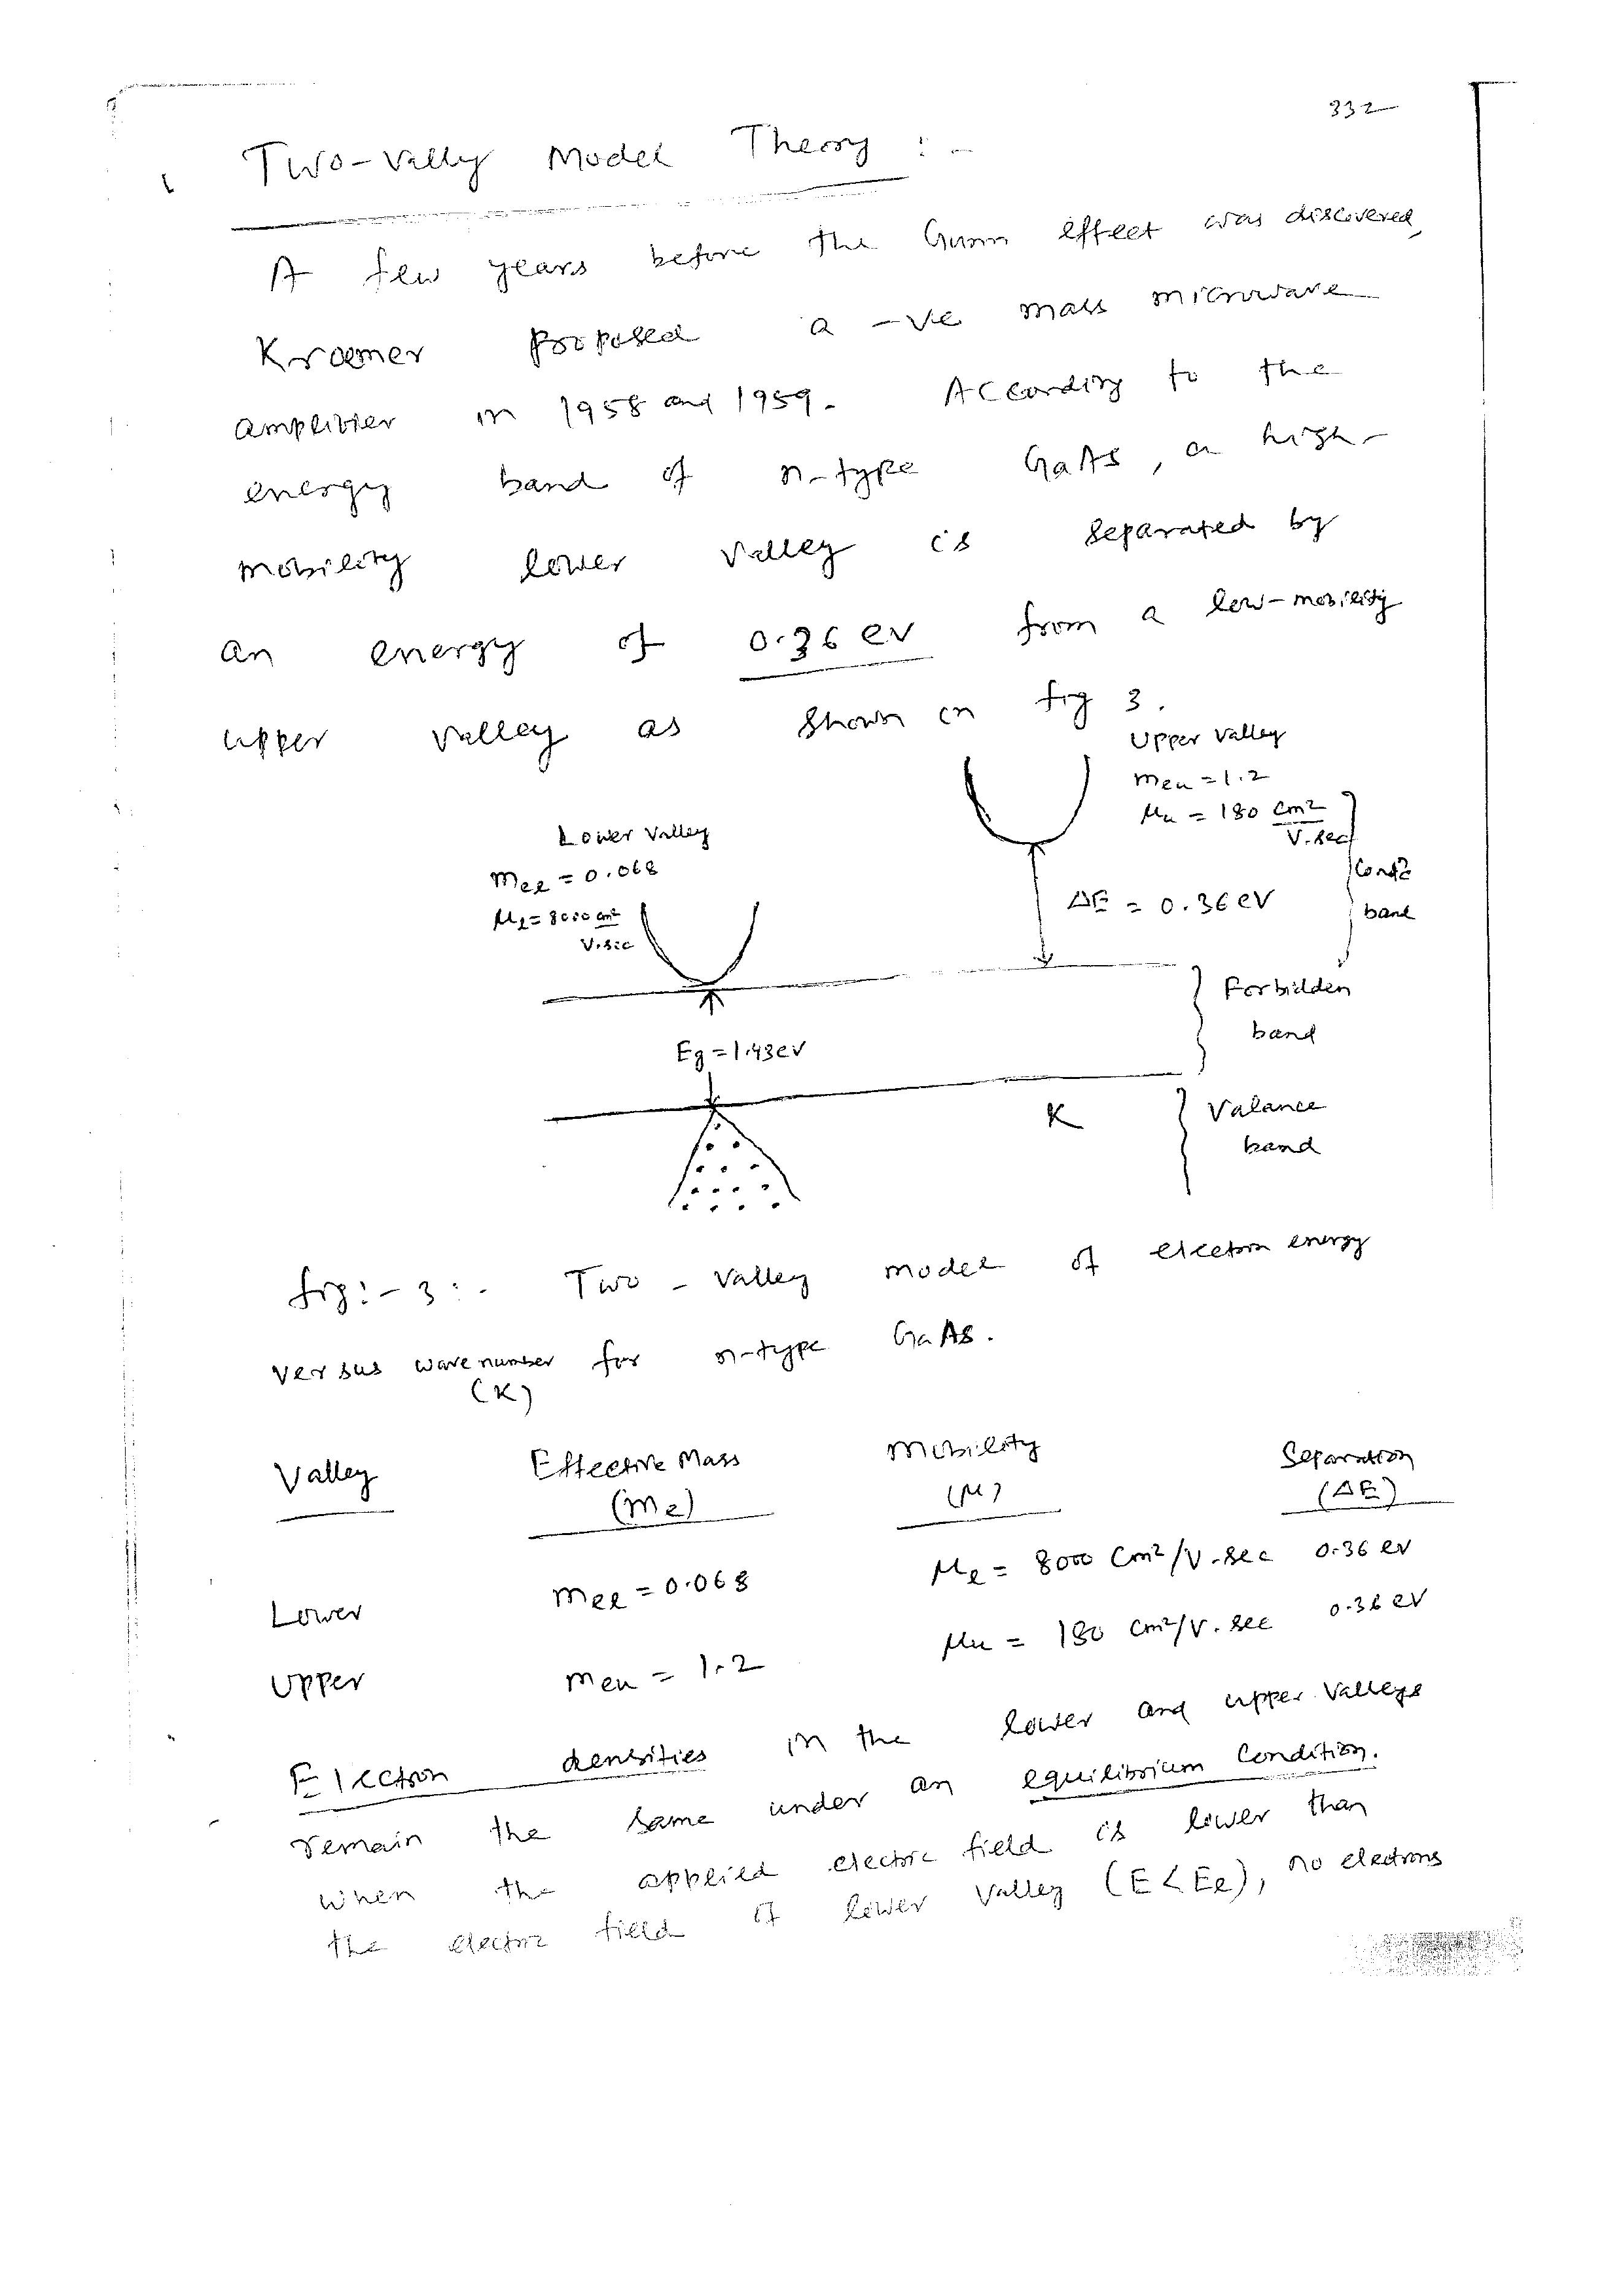 332
Two-Vally Model Theory :-
A few years before the Gunn effect was discovered,
Kroemer proposed a -ve mass microwave
amplifier in 1958 and 1959. According to the
energy band of n-type GaAs, a high-
mobility lower valley is separated by
an energy of 0.36 eV from a low-mobility
upper valley as shown in fig 3.
Upper valley
meu = 1.2
μu = 180 cm²/V.sec
Lower Valley
meℓ = 0.068
μℓ = 8000 cm²/V.sec
ΔE = 0.36 eV
Condⁿ
band
Forbidden
band
Eg = 1.43 eV
K
Valance
band
fig:-3:- Two-Valley model of electron energy
versus wave number for n-type GaAs.
(K)
Valley Effective Mass Mobility Separation
(me) (μ) (ΔE)
Lower meℓ = 0.068 μℓ = 8000 cm²/V.sec 0.36 eV
Upper meu = 1.2 μu = 180 cm²/V.sec 0.36 eV
Electron densities in the lower and upper valleys
remain the same under an equilibrium Condition.
when the applied electric field is lower than
the electric field of lower valley (E<Eℓ), no electrons